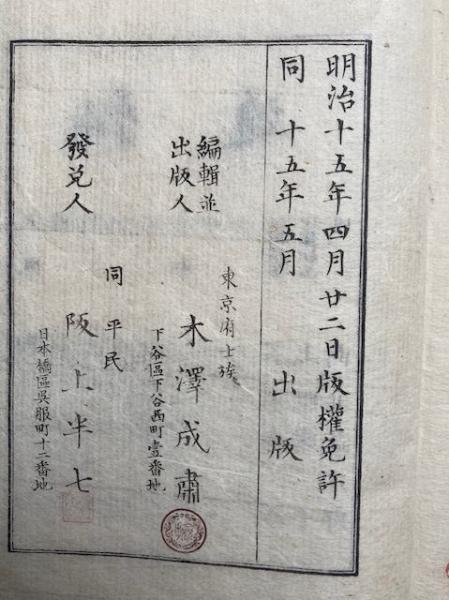 明治十五年四月廿二日版權免許
同 十五年五月 出版
編輯並
出版人
東京府士族
木澤成肅
下谷區下谷西町壹番地
發兌人
同 平民
阪上半七
日本橋區吳服町十二番地